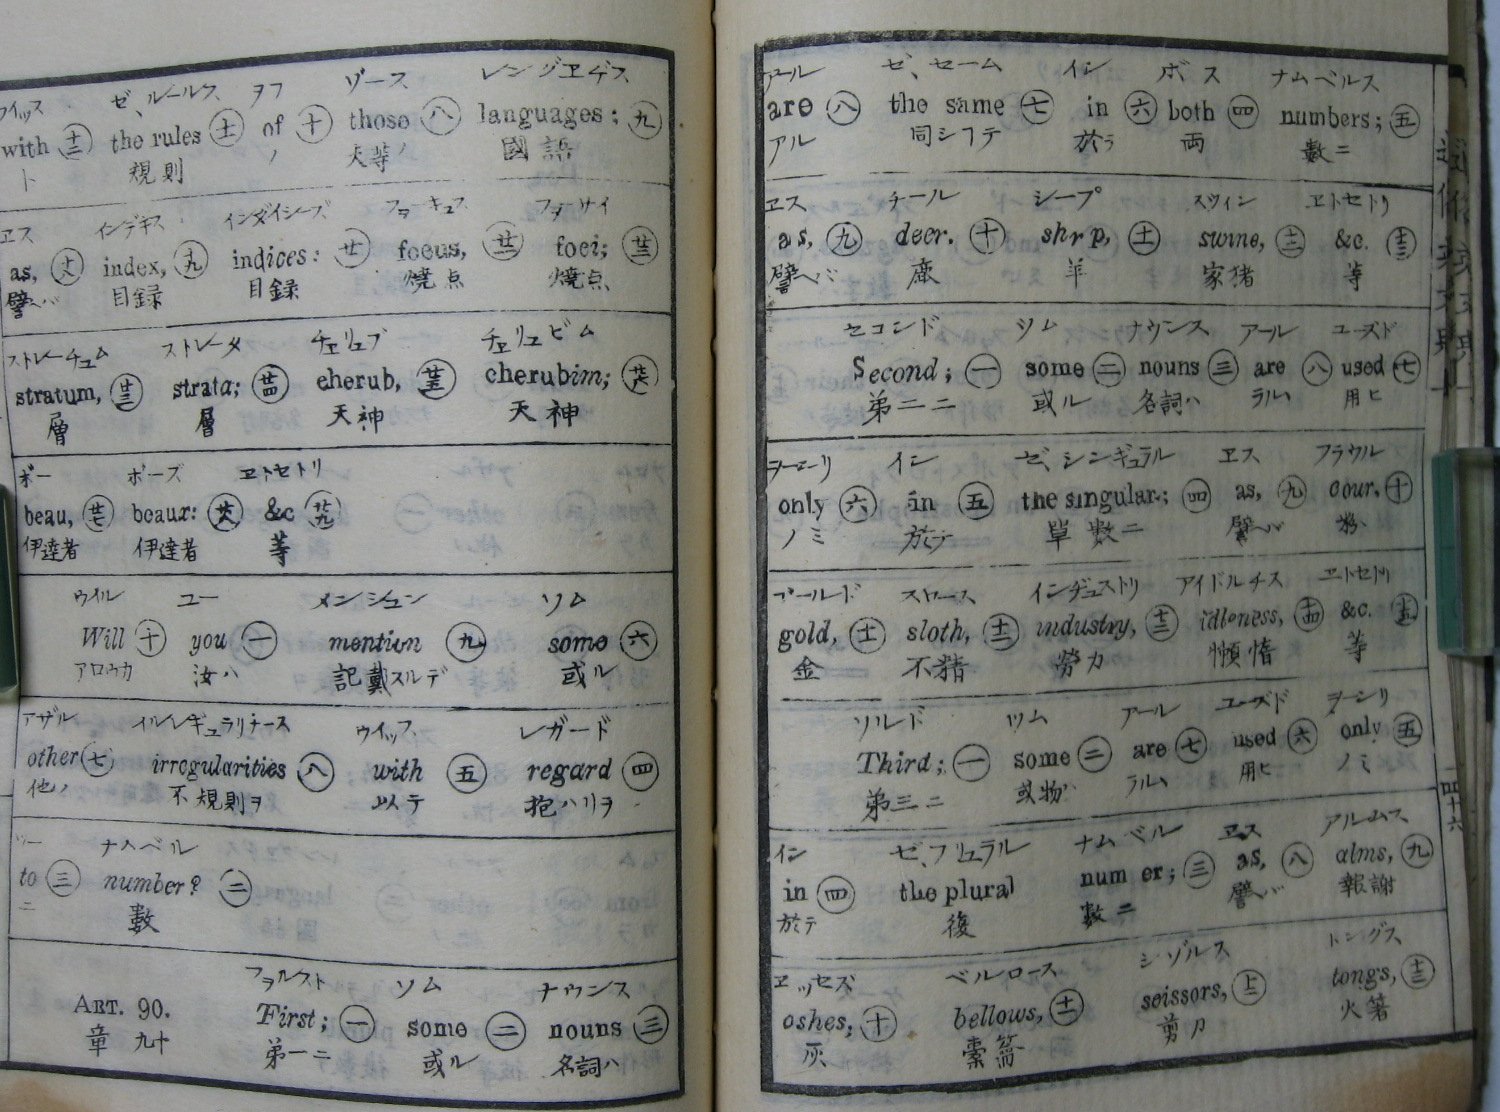 レングヱヂス
languages; 九
國語
ゾース
those 八
夫等ノ
ヲフ
of 十
ノ
ゼ、ルールス
the rules 十一
規則
ウイッス
with 十二
ト
ヱス インデキス インダイシーズ フヲーキュス フヲーサイ
as, 十八 index, 十九 indices: 廿 focus, 廿一 foci; 廿二
譬ヘバ 目録 目録 燒点 燒点
ストレーチュム ストレータ チェリュブ チェリュビム
stratum, 廿三 strata; 廿四 cherub, 廿五 cherubim; 廿六
層 層 天神 天神
ボー ボーズ ヱトセトリ
beau, 廿七 beaux: 廿八 &c 廿九
伊達者 伊達者 等
ウイル ユー メンシュン ソム
Will 十 you 一 mention 九 some 六
アロウカ 汝ハ 記戴スルデ 或ル
アザル イルレギュラリチース ウイッス レガード
other 七 irregularities 八 with 五 regard 四
他ノ 不規則ヲ 以テ 抱ハリヲ
ツー ナムベル
to 三 number? 二
ニ 數
フヲルスト ソム ナウンス
ART. 90. First; 一 some 二 nouns 三
章 九十 第一ニ 或ル 名詞ハ
アール ゼ、セーム イン ボス ナムベルス
are 八 the same 七 in 六 both 四 numbers; 五
アル 同シフテ 於テ 両 數ニ
ヱス チール シープ スウィン ヱトセトリ
as, 九 deer. 十 sh p, 十一 swine, 十二 &c. 十三
譬ヘバ 鹿 羊 家猪 等
セコンド ソム ナウンス アール ユーズド
Second; 一 some 二 nouns 三 are 八 used 七
第二ニ 或ル 名詞ハ ラルヽ 用ヒ
ヲーンリ イン ゼ、シンギュラル ヱス フラウル
only 六 in 五 the singular; 四 as, 九 our. 十
ノミ 於テ 単數ニ 譬ヘバ
ゴールド スロース インヂュストリ アイドルチス ヱトセトリ
gold, 十一 sloth, 十二 industry, 十三 idleness, 十四 &c. 十五
金 不精 勞力 懶惰 等
ソルド ソム アール ユーズド ヲーンリ
Third; 一 some 二 are 七 used 六 only 五
第三ニ 或物ハ ラルヽ 用ヒ ノミ
イン ゼ、プリュラル ナムベル ヱス アルムス
in 四 the plural num er; 三 as, 八 alms, 九
於テ 復 數ニ 譬ヘバ 報謝
ヱッセズ ベルロース シゾルス トングス
oshes, 十 bellows, 十一 scissors, 十二 tongs, 十三
灰 橐籥 剪刀 火箸
四十六